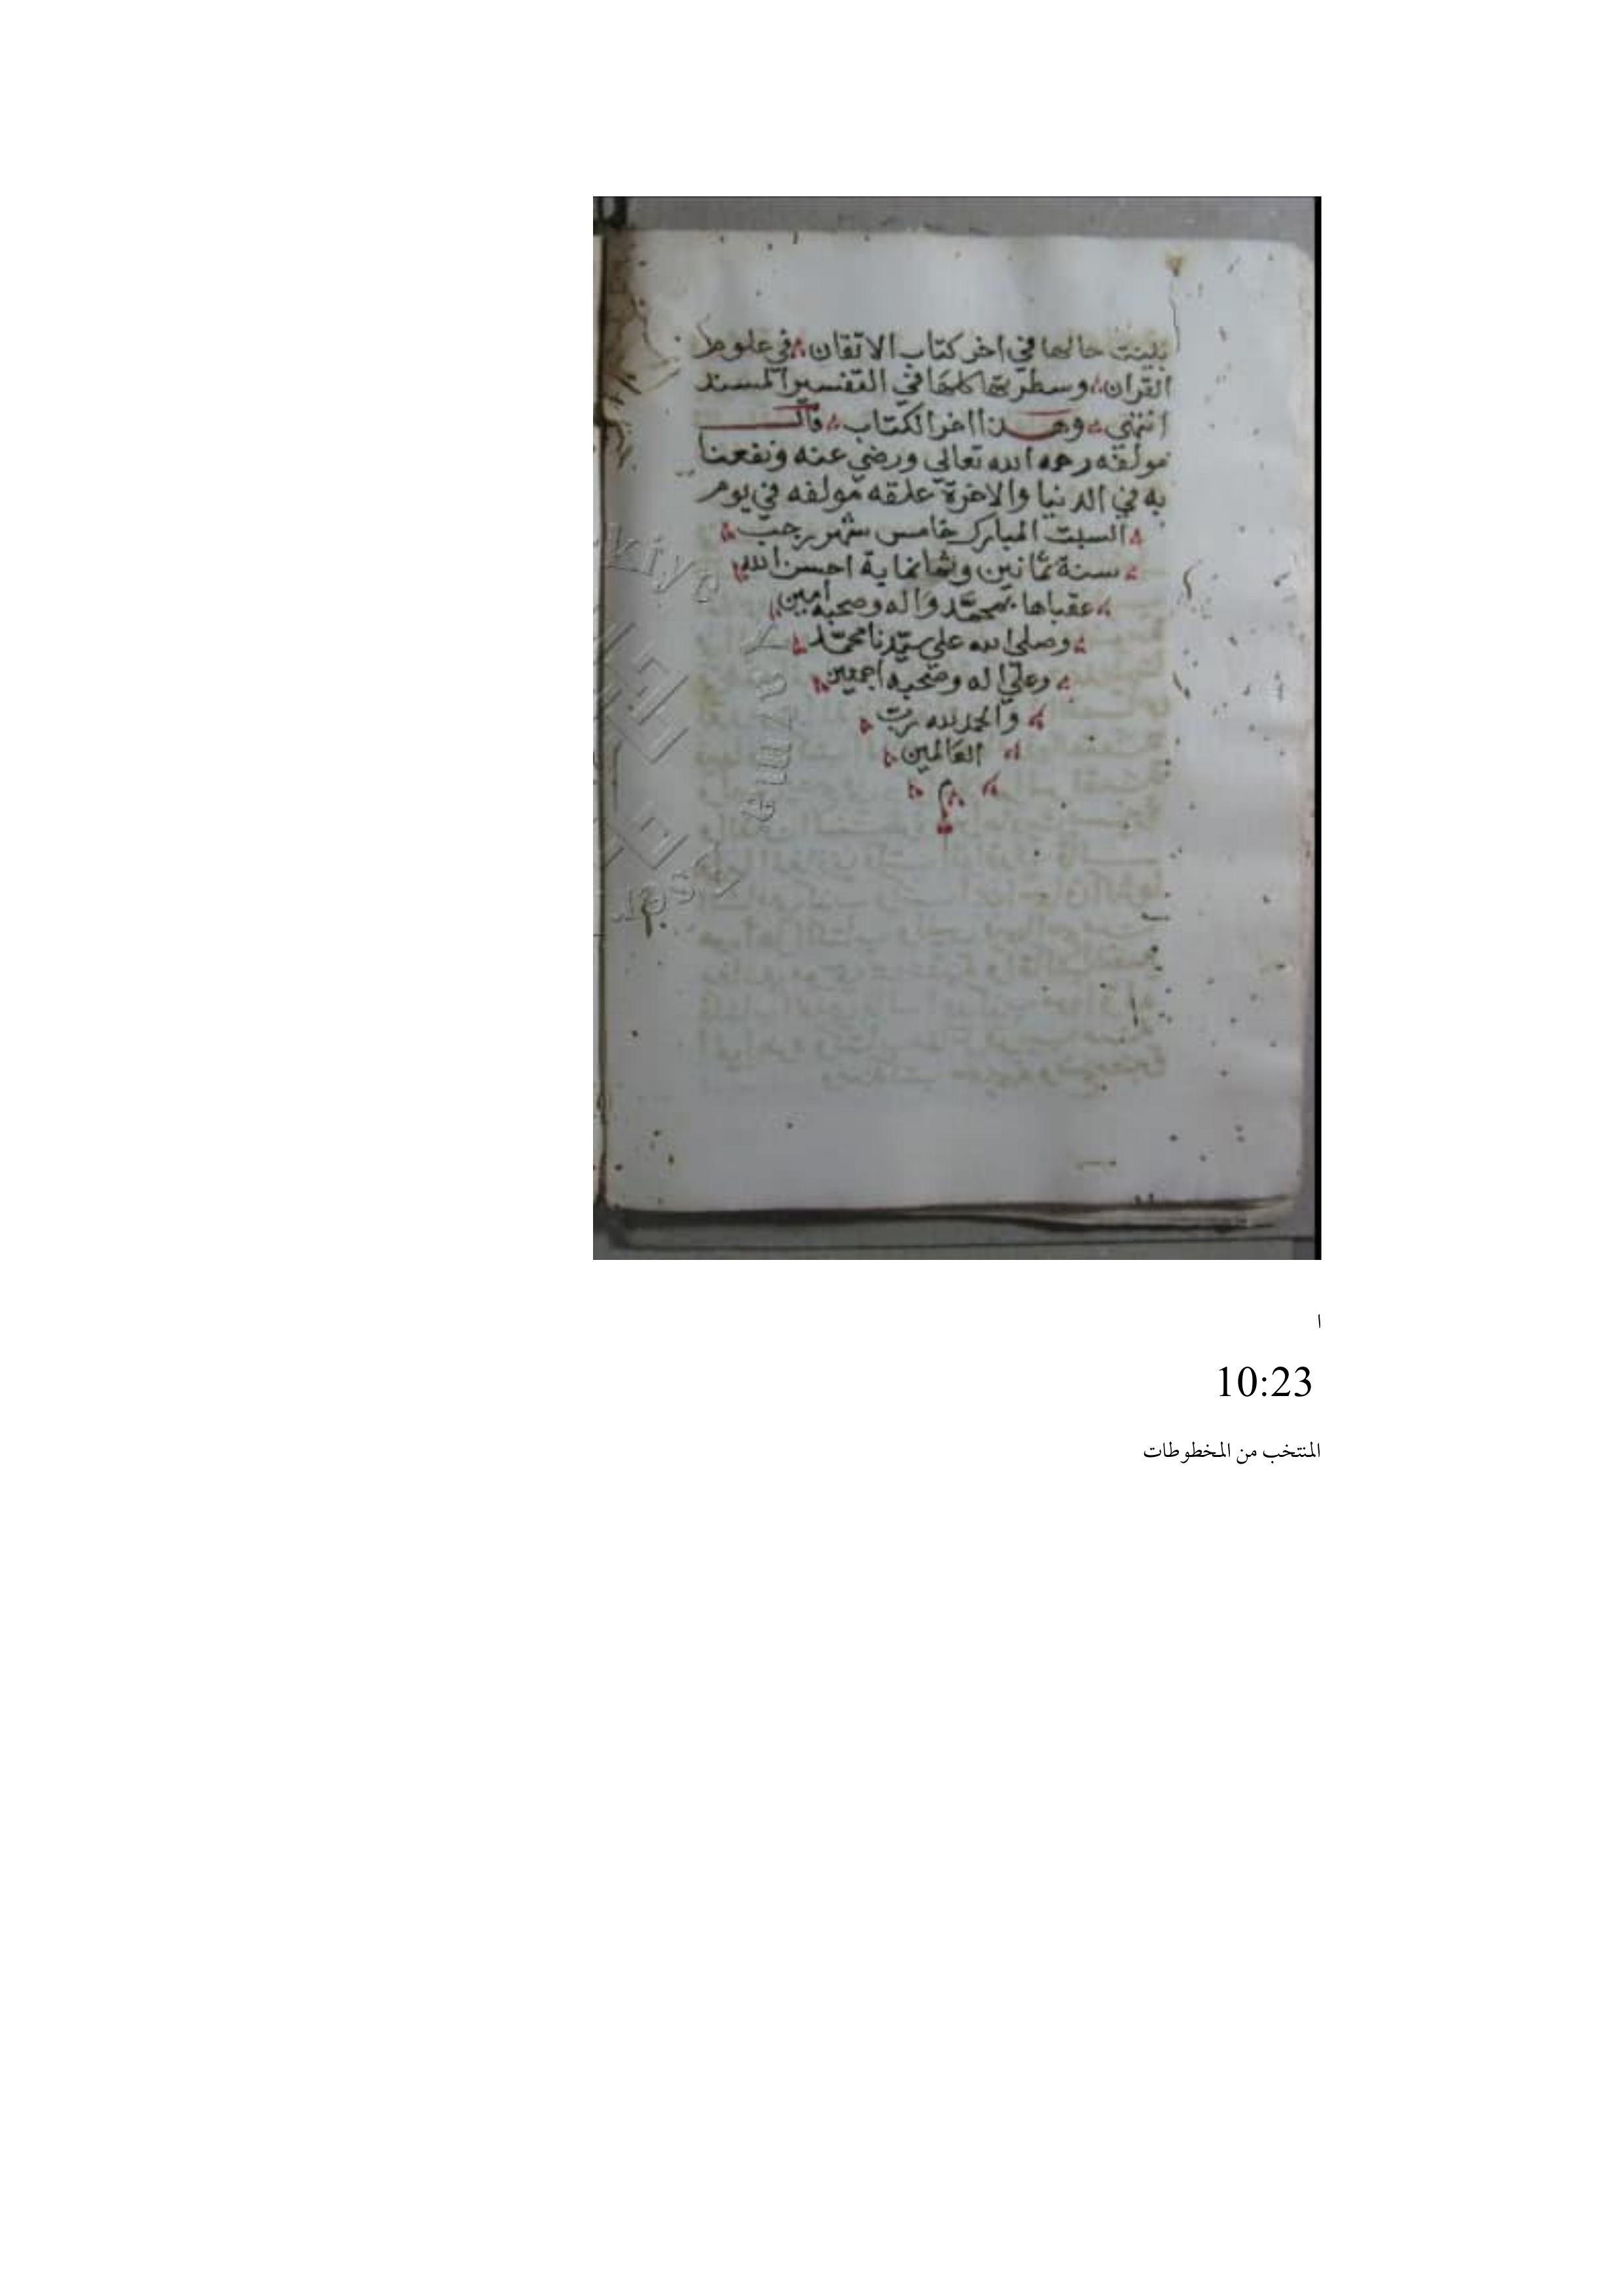 بينت حالها في اخر كتاب الاتقان في علوم
القران وسطرتها كلها في التفسير المسند
انتهي وهذا اخر الكتاب قال
مولفه رحمه الله تعالي ورضي عنه ونفعنا
به في الدنيا والاخرة علقه مولفه في يوم
السبت المبارك خامس شهر رجب
سنة ثمانين وثمانماية احسن الله
عقباها بمحمد واله وصحبه امين
وصلي الله علي سيدنا محمد
وعلي اله وصحبه اجمعين
والحمد لله رب
العالمين
م
ا
10:23
المنتخب من المخطوطات